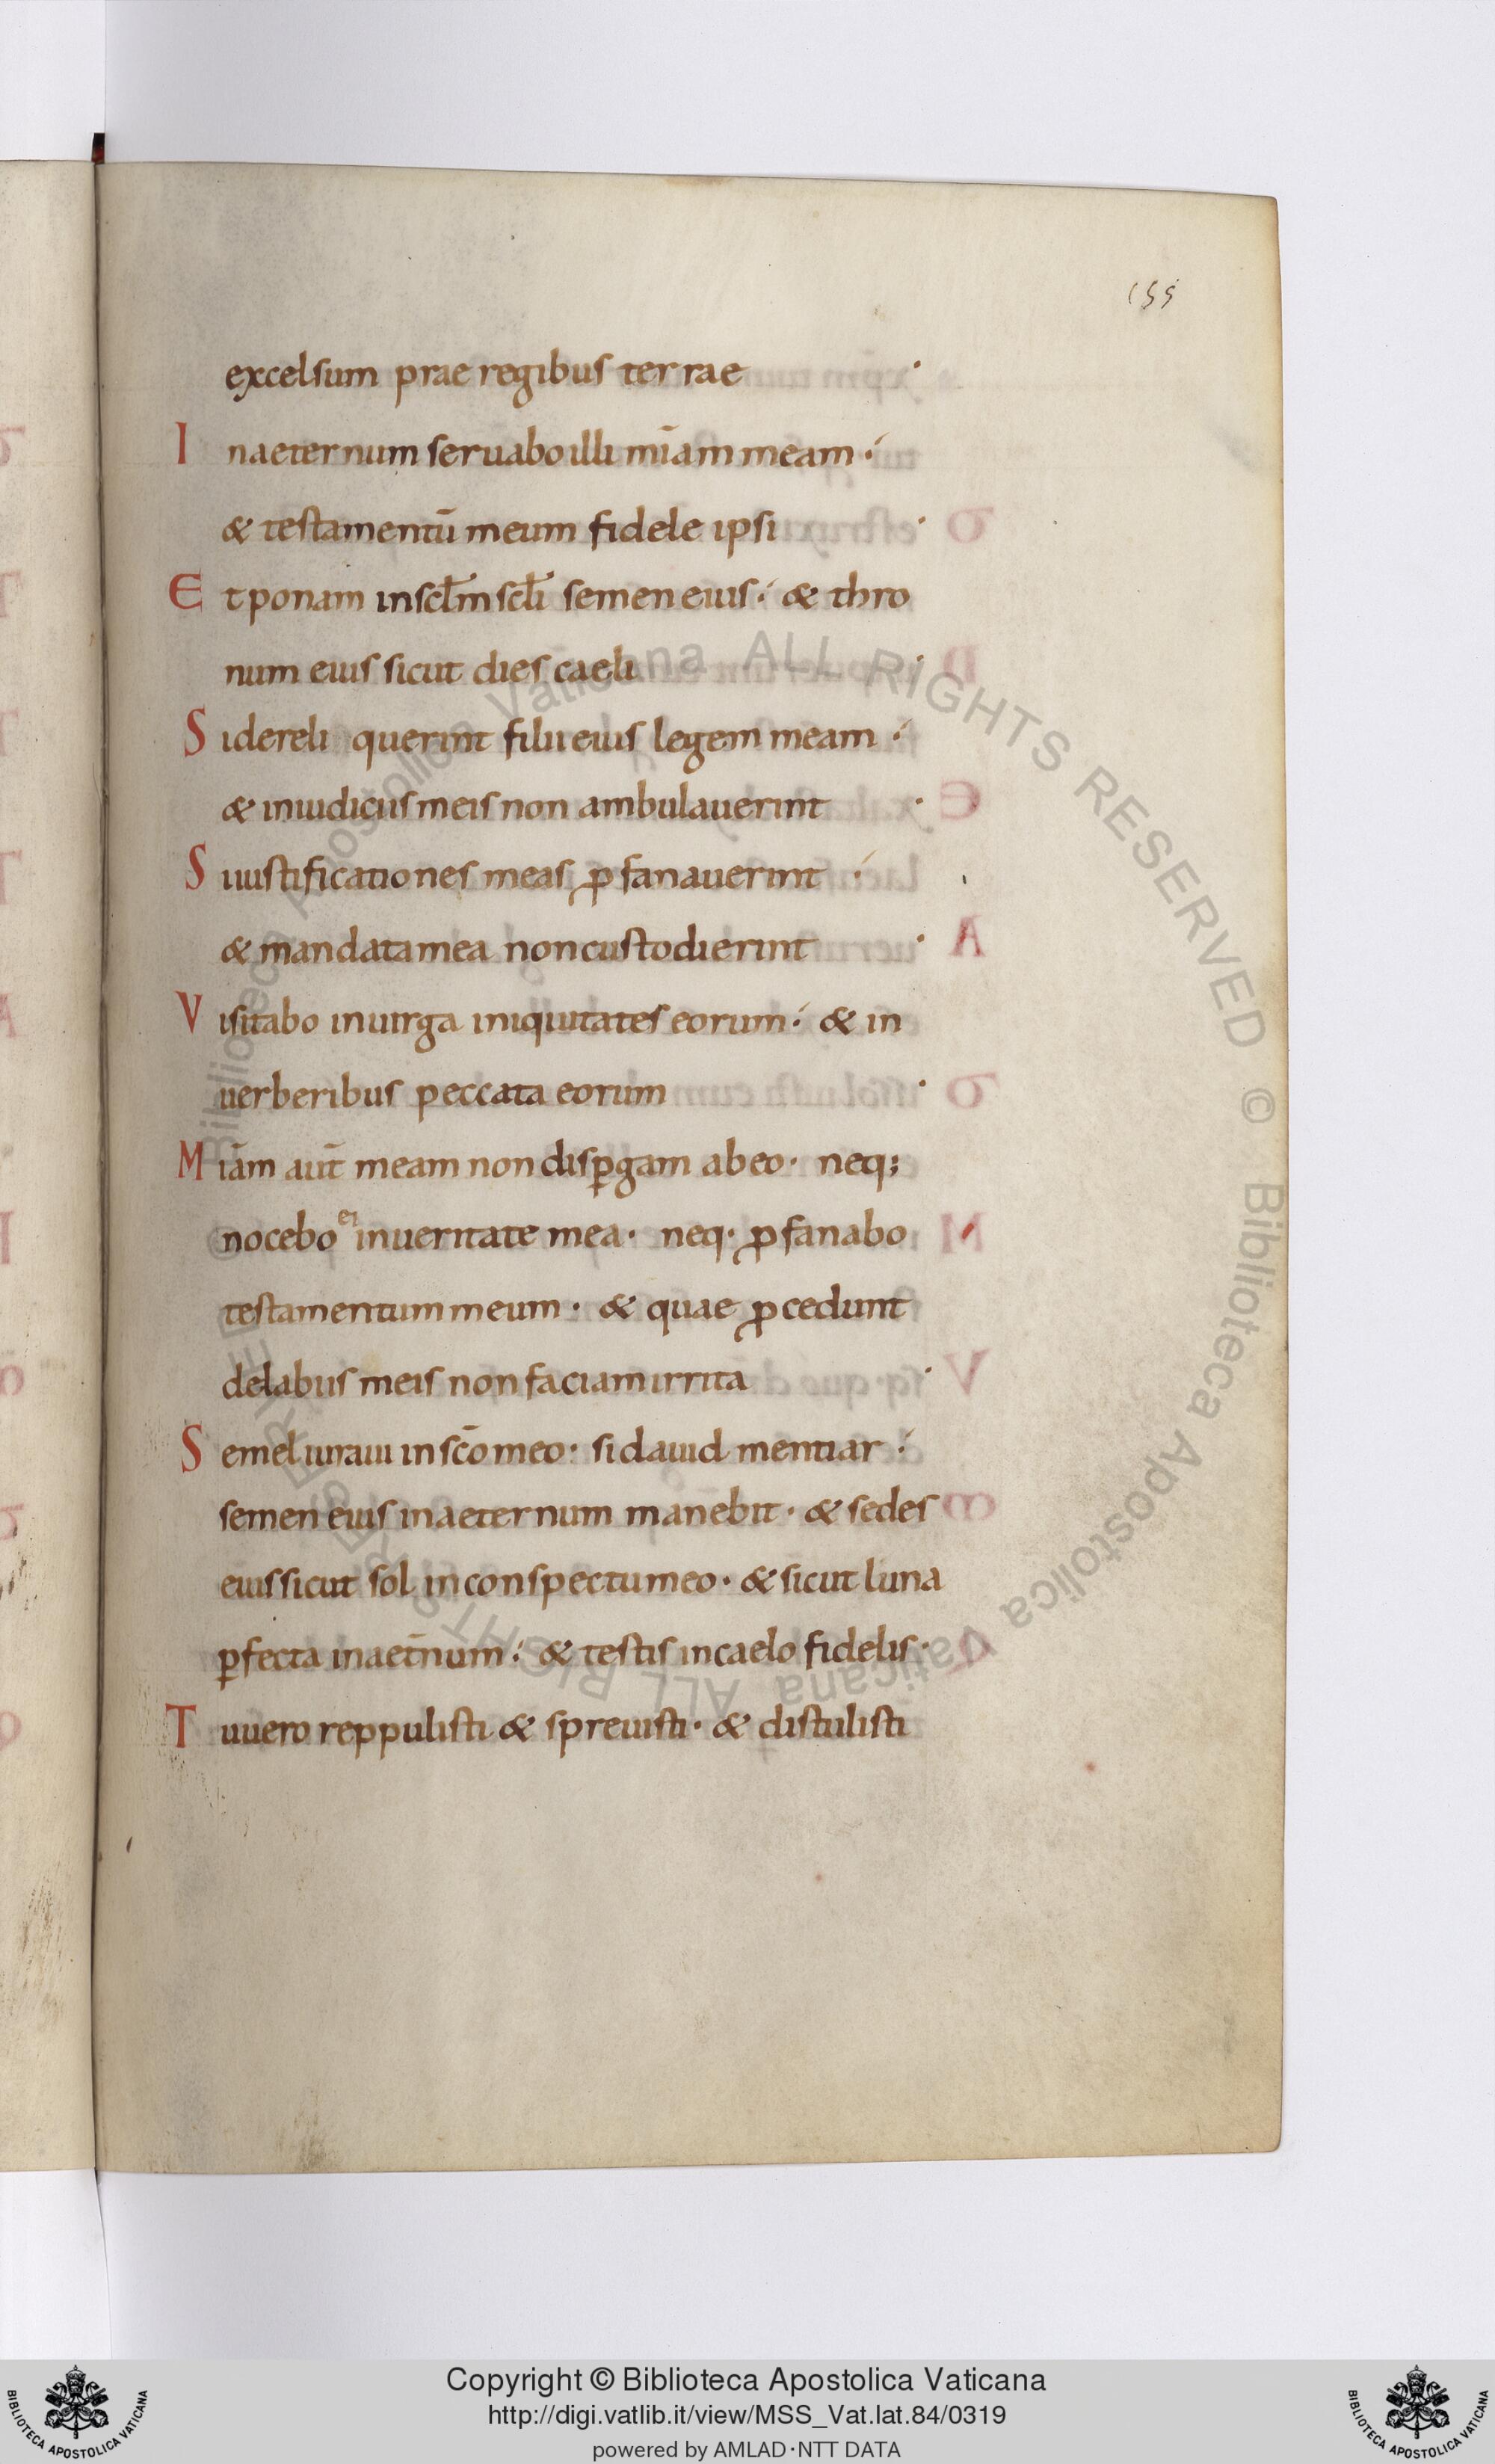 155
excelsum prae regibus terrae ·
I naeternum seruabo illi mīam meam ·
& testamentū meum fidele ipsi ·
E t ponam inscl̄m scl̄i semen eius · & thro
num eius sicut dies caeli ·
S idereliquerint filii eius legem meam ·
& iniudiciis meis non ambulauerint ·
S iiustificationes meas ꝓfanauerint ·
& mandata mea non custodierint ·
V isitabo inuirga iniquitates eorum · & in
uerberibus peccata eorum ·
M iām aut̄ meam non disꝑgam abeo · neq;
nocebo ei inueritate mea · neq· ꝓfanabo
testamentum meum · & quae ꝓcedunt
delabiis meis non faciam irrita ·
S emel iuraui in sc̄o meo · si dauid mentiar ·
semen eius inaeternum manebit · & sedes
eius sicut sol inconspectu meo · & sicut luna
ꝑfecta inaet̄num · & testis incaelo fidelis ·
T uuero reppulisti & spreuisti · & distulisti
Biblioteca Apostolica Vaticana ALL RIGHTS RESERVED © Biblioteca Apostolica Vaticana ALL RIGHTS RESERVED ©
Copyright © Biblioteca Apostolica Vaticana
http://digi.vatlib.it/view/MSS_Vat.lat.84/0319
powered by AMLAD·NTT DATA
BIBLIOTECA APOSTOLICA VATICANA
BIBLIOTECA APOSTOLICA VATICANA